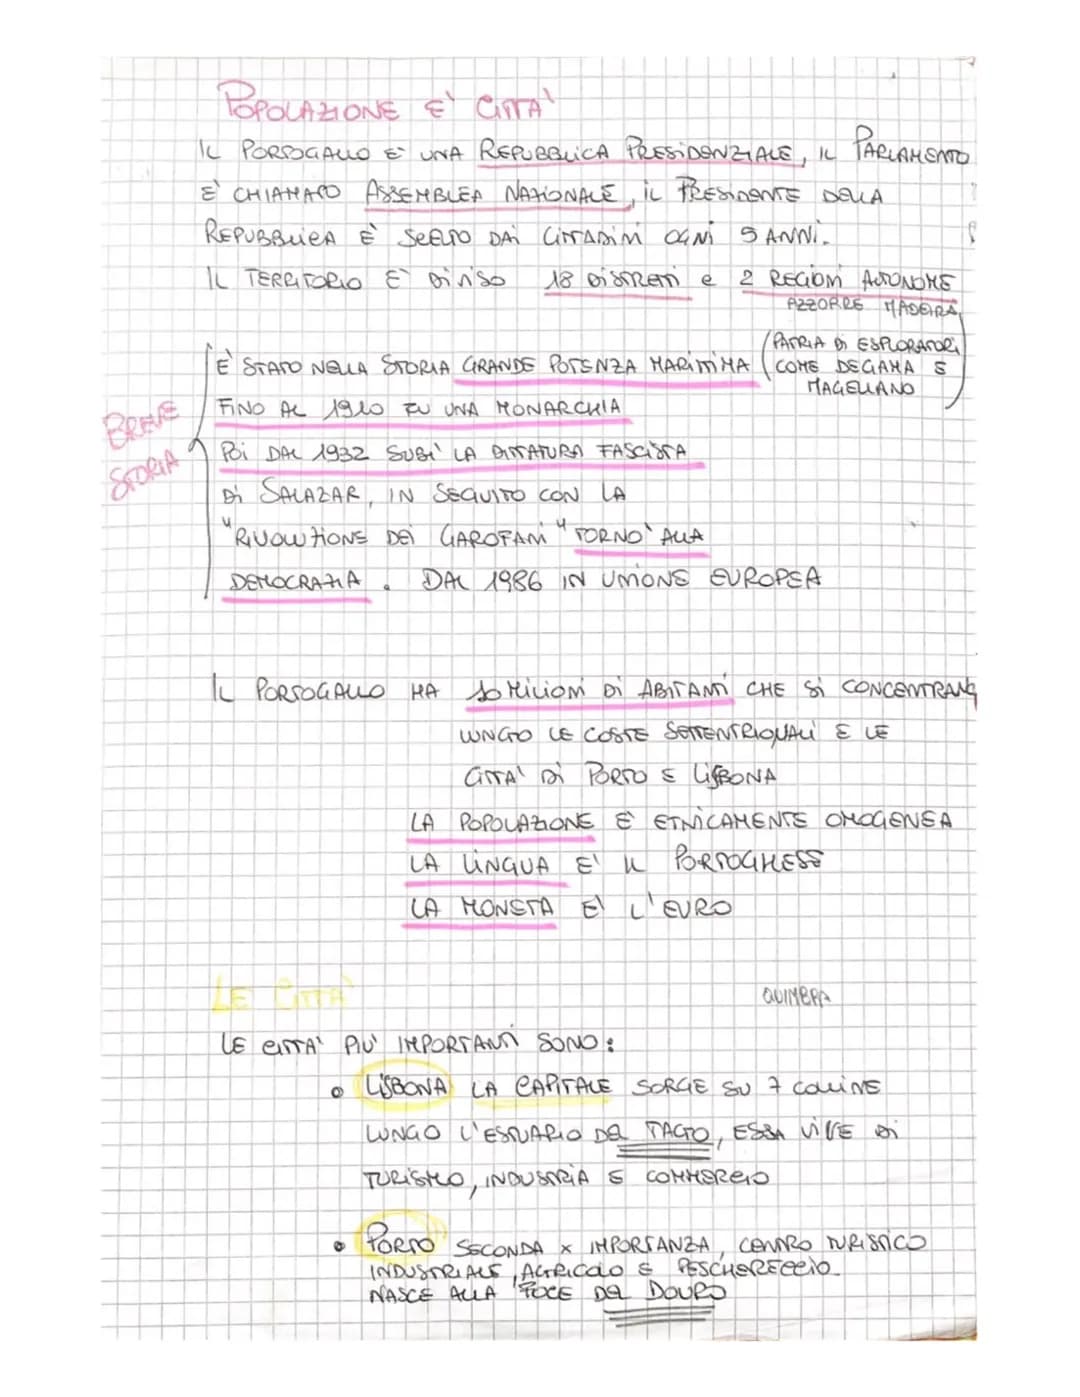 POPOLAZIONE E' CITTA'
IL PORTOGALLO E' UNA REPUBBLICA PRESIDENZIALE, IL PARLAMENTO
E' CHIAMATO ASSEMBLEA NAZIONALE, IL PRESIDENTE DELLA
REPUBBLICA È SCELTO DAI CITTADINI OGNI 5 ANNI.
IL TERRITORIO E' DIVISO 18 DISTRETTI e 2 REGIONI AUTONOME
AZZORRE MADEIRA
(PATRIA DI ESPLORATORI
È STATO NELLA STORIA GRANDE POTENZA MARITTIMA COME DEGAMA E
MAGELLANO
FINO AL 1910 FU UNA MONARCHIA
BREVE
STORIA
POI DAL 1932 SUBI' LA DITTATURA FASCISTA
DI SALAZAR, IN SEGUITO CON LA
"RIVOLUZIONE DEI GAROFANI" TORNO' ALLA
DEMOCRAZIA. DAL 1986 IN UNIONE EUROPEA
IL PORTOGALLO HA 10 MILIONI DI ABITANTI CHE SI CONCENTRANO
LUNGO LE COSTE SETTENTRIONALI E LE
CITTA' DI PORTO E LISBONA
LA POPOLAZIONE E' ETNICAMENTE OMOGENEA
LA LINGUA E' IL PORTOGHESE
LA MONETA E' L'EURO
LE CITTA'
QUIMBRA
LE CITTA' PIU' IMPORTANTI SONO:
• LISBONA LA CAPITALE SORGE SU 7 COLLINE
LUNGO L'ESTUARIO DEL TAGO, ESSA VIVE DI
TURISMO, INDUSTRIA E COMMERCIO
• PORTO SECONDA X IMPORTANZA, CENTRO TURISTICO
INDUSTRIALE, AGRICOLO E PESCHERECCIO
NASCE ALLA FOCE DEL DOURO